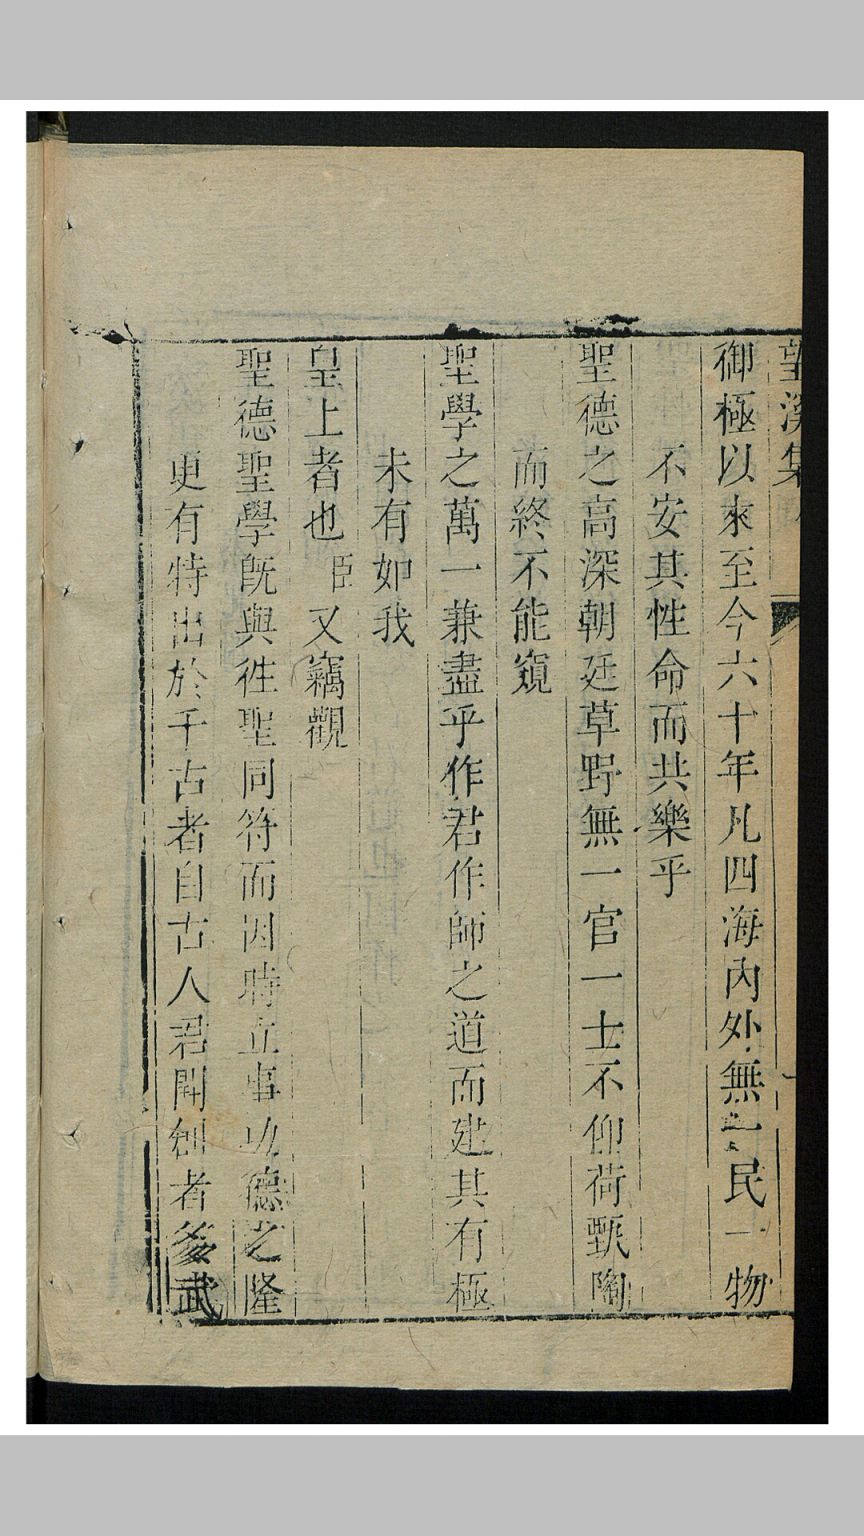 望溪集
御極以來至今六十年凡四海內外無一民一物
不安其性命而共樂乎
聖德之高深朝廷草野無一官一士不仰荷甄陶
而終不能窺
聖學之萬一兼盡乎作君作師之道而建其有極
未有如我
皇上者也臣又竊觀
聖德聖學既與往聖同符而因時立事功德之隆
更有特出於千古者自古人君開創者多武